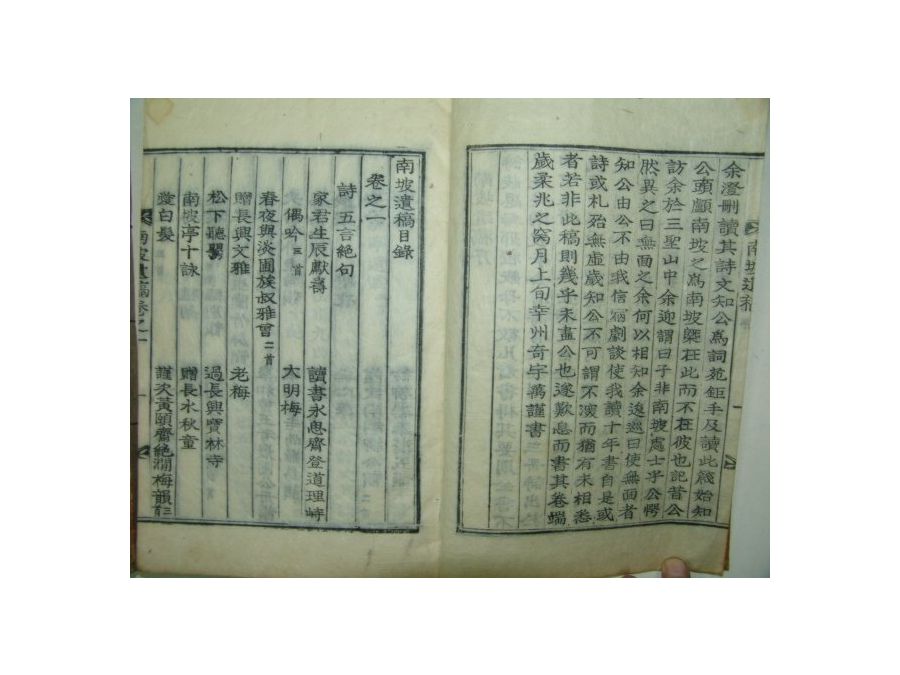 余澄刪讀其詩文知公爲詞苑鉅手及讀此後始知
公頭顱南坡之爲南坡槩在此而不在彼也記昔公
訪余於三聖山中余迎謂曰子非南坡處士乎公愕
然異之曰無面之余何以相知余逡巡曰使無面者
知公由公不由我信宿劇談使我讀十年書自是或
詩或札殆無虛歲知公不可謂不深而猶有未相悉
者若非此稿則幾乎未盡公也遂歎息而書其卷端
歲柔兆之窝月上旬幸州奇宇萬謹書
南坡遺稿
南坡遺稿目錄
卷之一
詩 五言絶句
家君生辰獻壽 讀書永思齋登道理峙
偶吟 三首 大明梅
春夜與淡圃族叔雅會 二首
贈長興文雅 老梅
松下聽鸎 過長興寶林寺
南坡亭十詠 贈長水秋童
歎白髮 謹次黃頤齋絶澗梅韻 二首
南坡遺稿卷之一